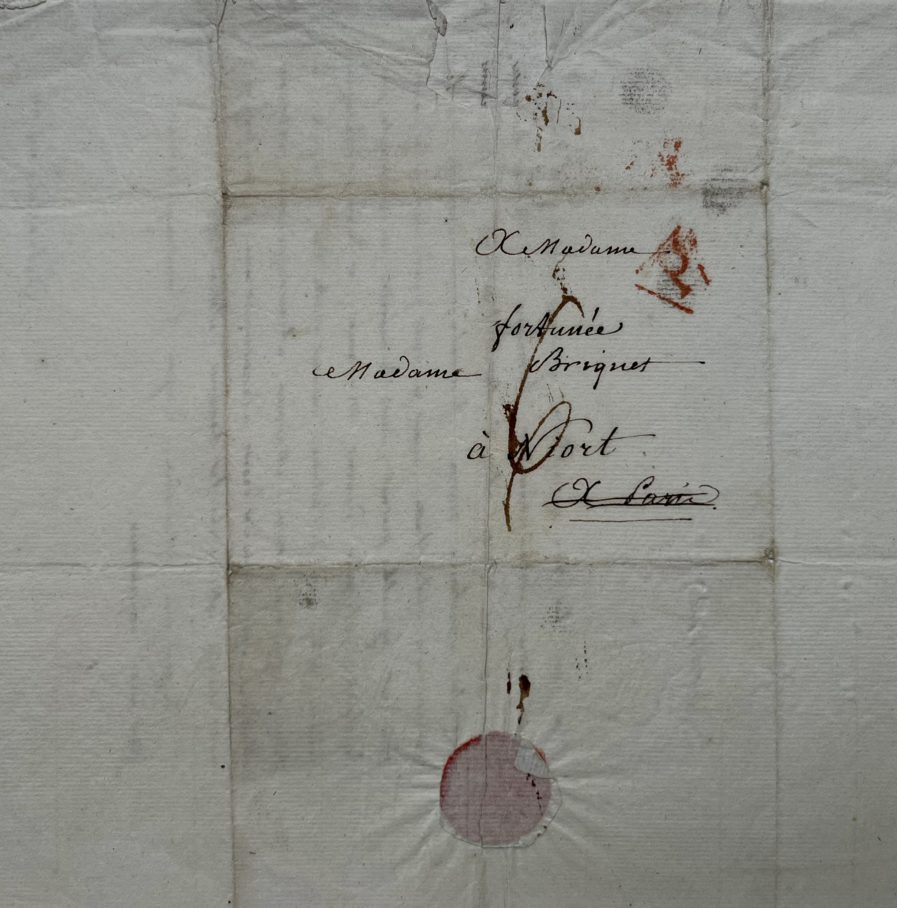 A Madame
fortunée
Madame Briquet
à Niort
A Paris